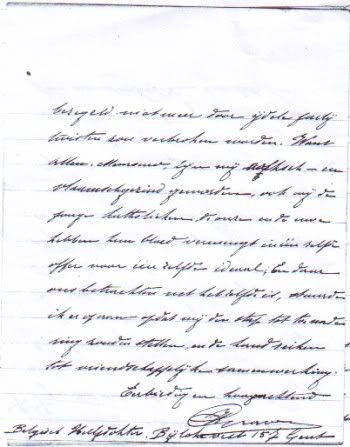 bezegeld niet meer door ijdele partij
twisten zou verbroken worden. Want
allen, Mevrouw, zijn wij - en
vlaamschgezind geworden, ook wij de
jonge katholieken, de onze en de uwe
hebben hun bloed vermengd in één zelfde
offer voor één zelfde ideaal; En daar
ons betrachten net hetzelfde is, 
ik er aan opdat wij den stap tot toenade
ring zouden stellen, en de hand reiken
tot vriendschappelijke samenwerking.
Eerbiedig en hoogachtend
Belgisch Hulpdokter, Bijlokevest Gent